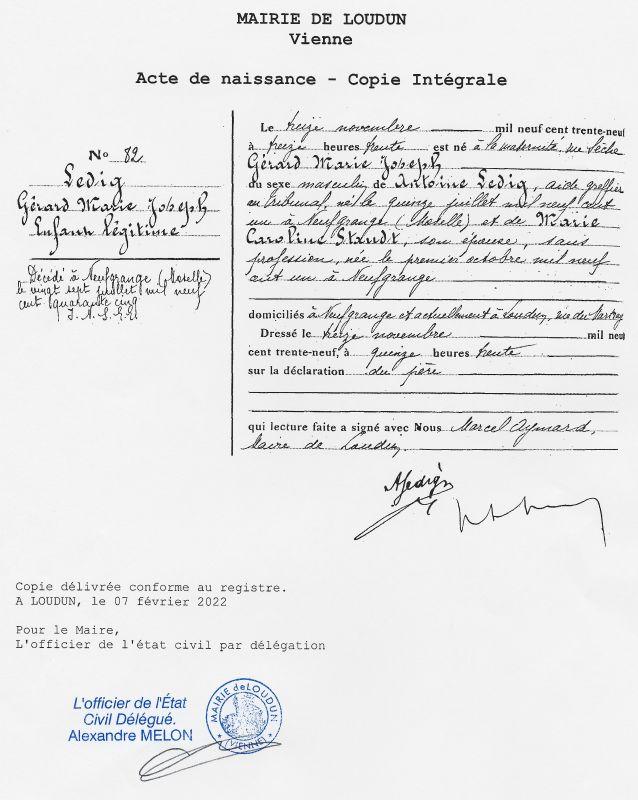 MAIRIE DE LOUDUN
Vienne
Acte de naissance - Copie Intégrale
No 82
Ledig
Gérard Marie Joseph
Enfant légitime
Décédé à Neufgrange (Moselle)
le vingt sept juillet mil neuf
cent quarante cinq
Le treize novembre mil neuf cent trente-neuf
à treize heures trente est né à la maternité, rue Sèche
Gérard Marie Joseph
du sexe masculin, de Antoine Ledig, aide greffier
au Tribunal, né le quinze juillet mil neuf cent
un à Neufgrange (Moselle) et de Marie
Caroline Staudt, son épouse, sans
profession, née le premier octobre mil neuf
cent un à Neufgrange
domiciliés à Neufgrange et actuellement à Loudun, rue du Martray
Dressé le treize novembre mil neuf
cent trente-neuf, à quinze heures trente
sur la déclaration du père
qui lecture faite a signé avec Nous Marcel Aymard,
Maire de Loudun
ALedig
Copie délivrée conforme au registre.
A LOUDUN, le 07 février 2022
Pour le Maire,
L'officier de l'état civil par délégation
L'officier de l'État
Civil Délégué.
Alexandre MELON
MAIRIE de LOUDUN
(VIENNE)